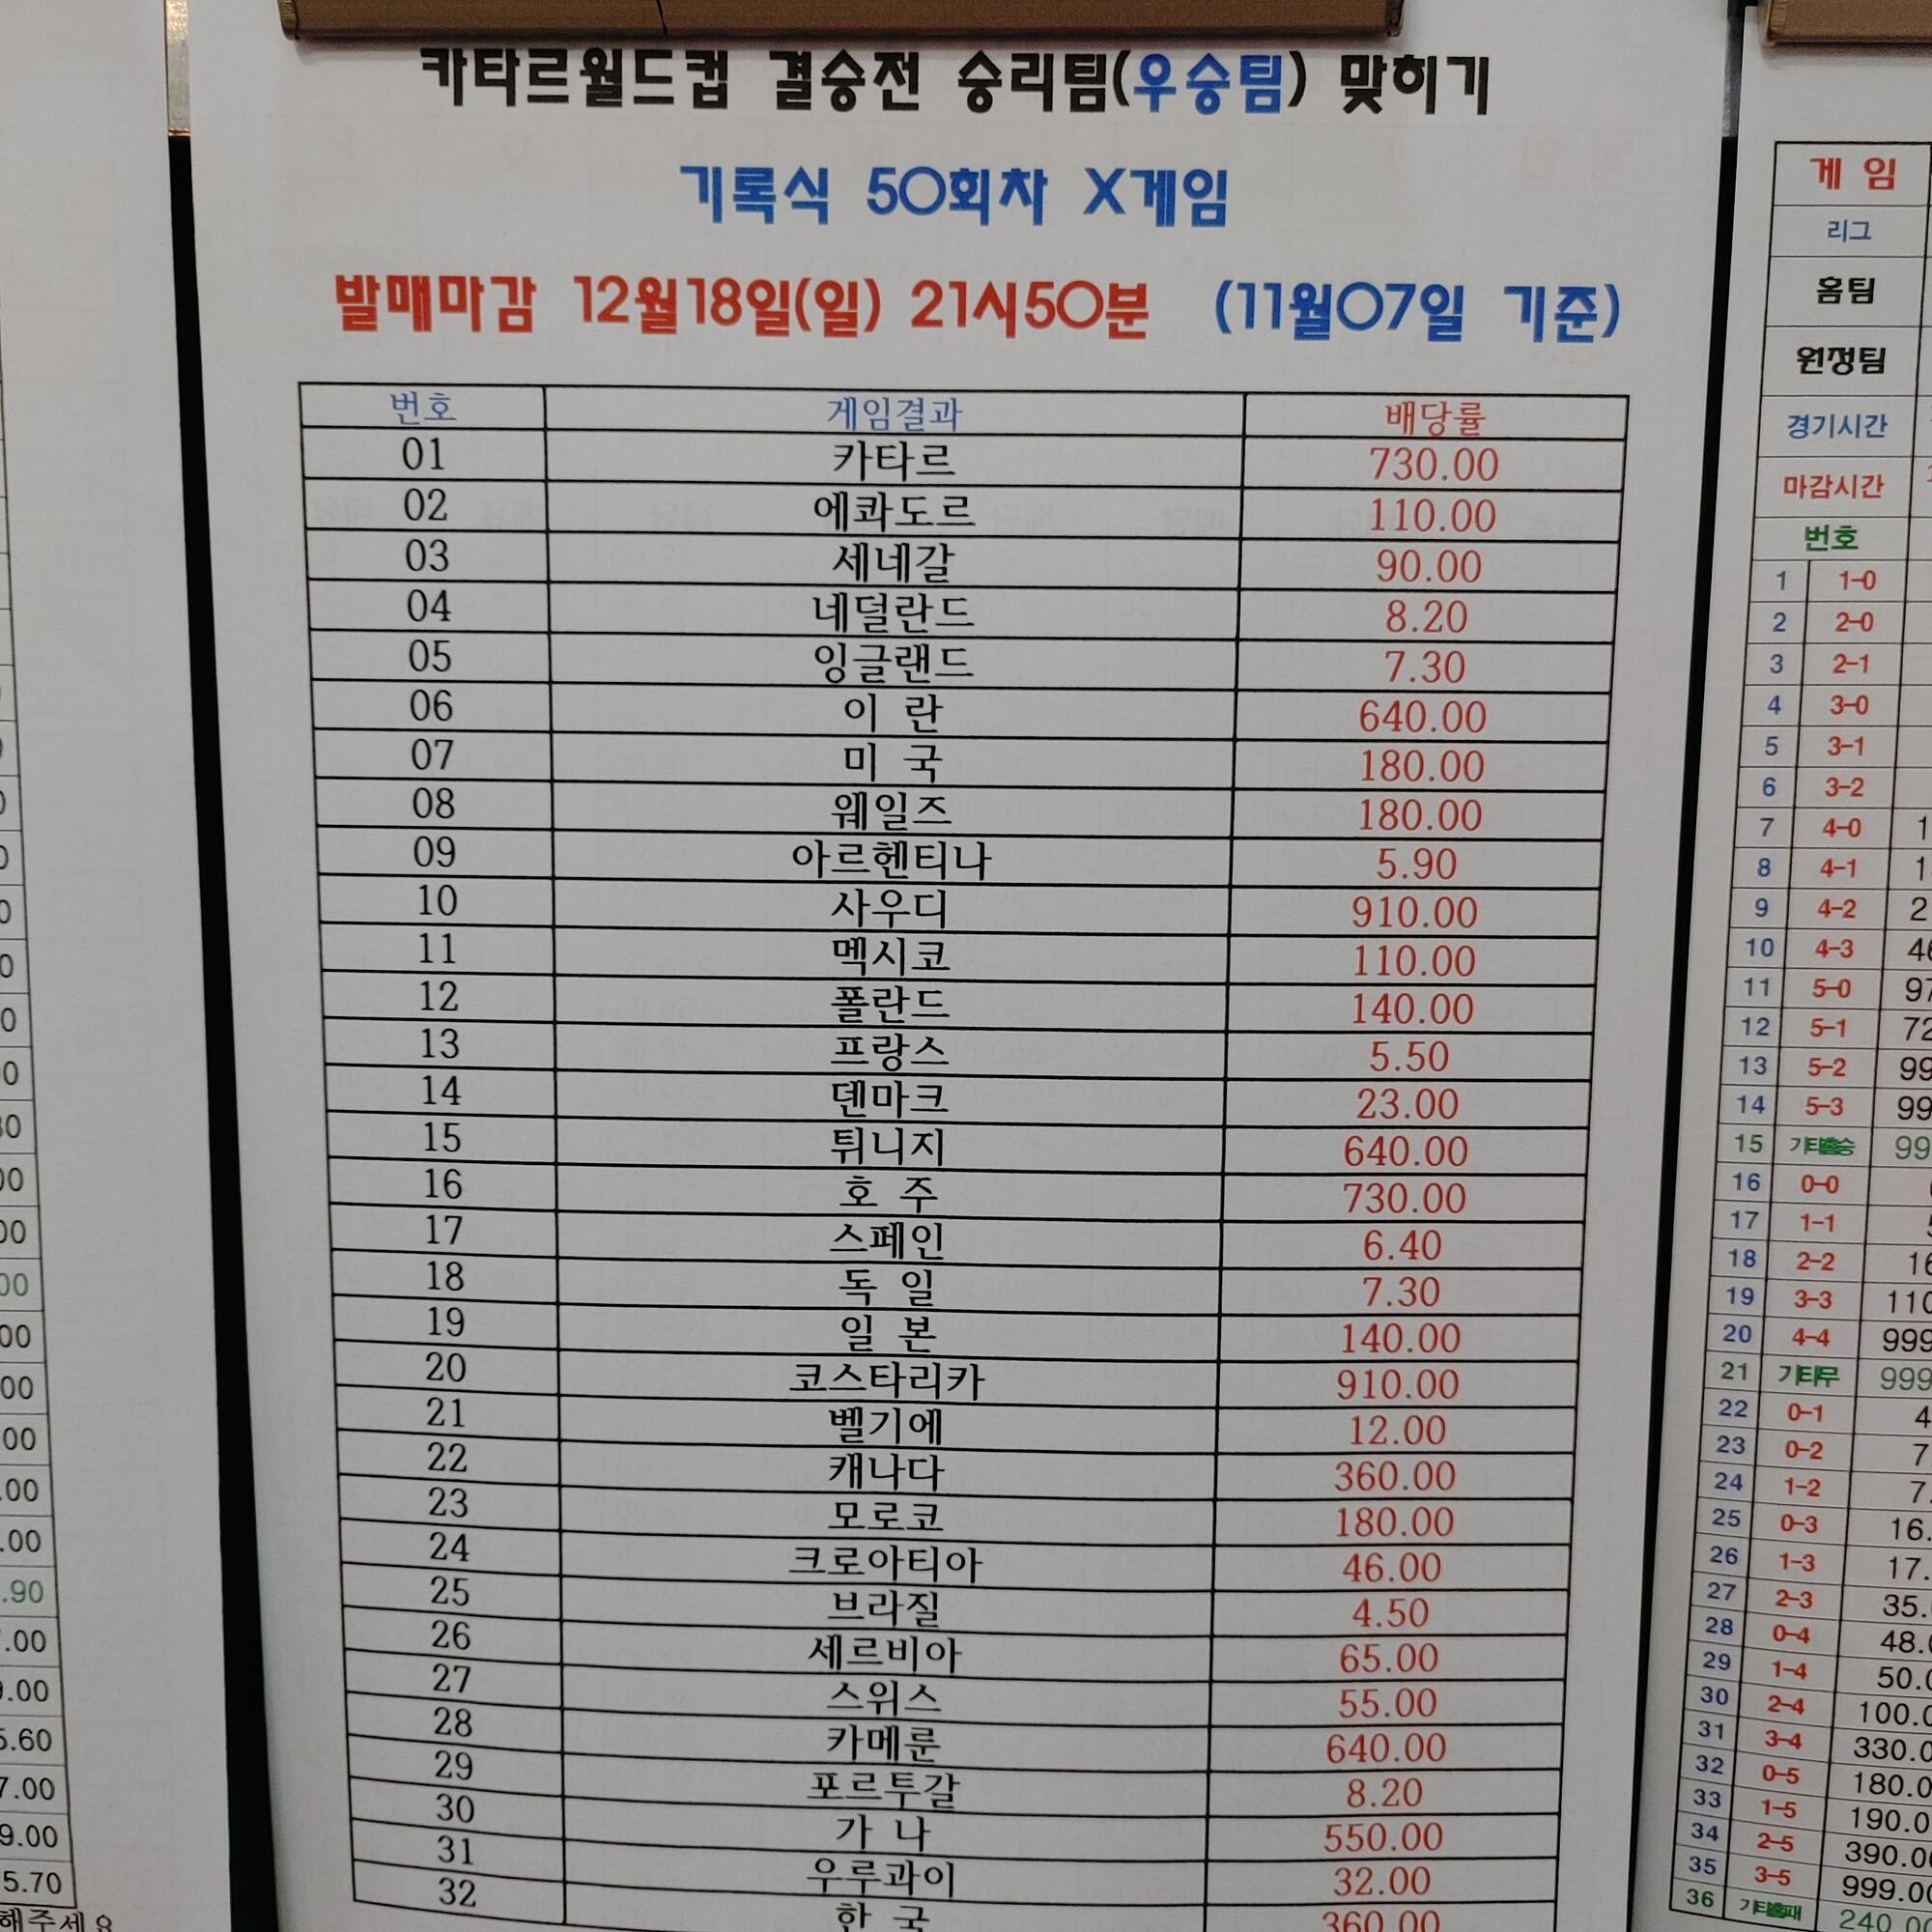 카타르월드컵 결승전 승리팀(우승팀) 맞히기
기록식 50회차 X게임
발매마감 12월18일(일) 21시50분 (11월07일 기준)
번호 게임결과 배당률
01 카타르 730.00
02 에콰도르 110.00
03 세네갈 90.00
04 네덜란드 8.20
05 잉글랜드 7.30
06 이 란 640.00
07 미 국 180.00
08 웨일즈 180.00
09 아르헨티나 5.90
10 사우디 910.00
11 멕시코 110.00
12 폴란드 140.00
13 프랑스 5.50
14 덴마크 23.00
15 튀니지 640.00
16 호 주 730.00
17 스페인 6.40
18 독 일 7.30
19 일 본 140.00
20 코스타리카 910.00
21 벨기에 12.00
22 캐나다 360.00
23 모로코 180.00
24 크로아티아 46.00
25 브라질 4.50
26 세르비아 65.00
27 스위스 55.00
28 카메룬 640.00
29 포르투갈 8.20
30 가 나 550.00
31 우루과이 32.00
32 한 국 360.00
게 임
리그
홈팀
원정팀
경기시간
마감시간
번호
1 1-0
2 2-0
3 2-1
4 3-0
5 3-1
6 3-2
7 4-0 1
8 4-1 1
9 4-2 2
10 4-3 46
11 5-0 97
12 5-1 72
13 5-2 99
14 5-3 99
15 기타홈승 99
16 0-0
17 1-1
18 2-2 16
19 3-3 110
20 4-4 999
21 기타무 999
22 0-1 4
23 0-2 7
24 1-2 7.
25 0-3 16.
26 1-3 17.
27 2-3 35.
28 0-4 48.
29 1-4 50.0
30 2-4 100.0
31 3-4 330.0
32 0-5 180.0
33 1-5 190.0
34 2-5 390.0
35 3-5 999.0
36 기타홈패 240.0
.90
5.60
7.00
9.00
5.70
해주세요